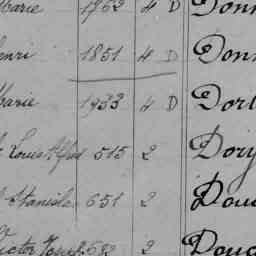 Marie 1762 4 D Donn
enri 1851 4 D Donn
Marie 1933 4 D Dorl
Louis Alfred 515 2 Dory
Stanislas 651 2 Dou
Victor 682 2 Doug